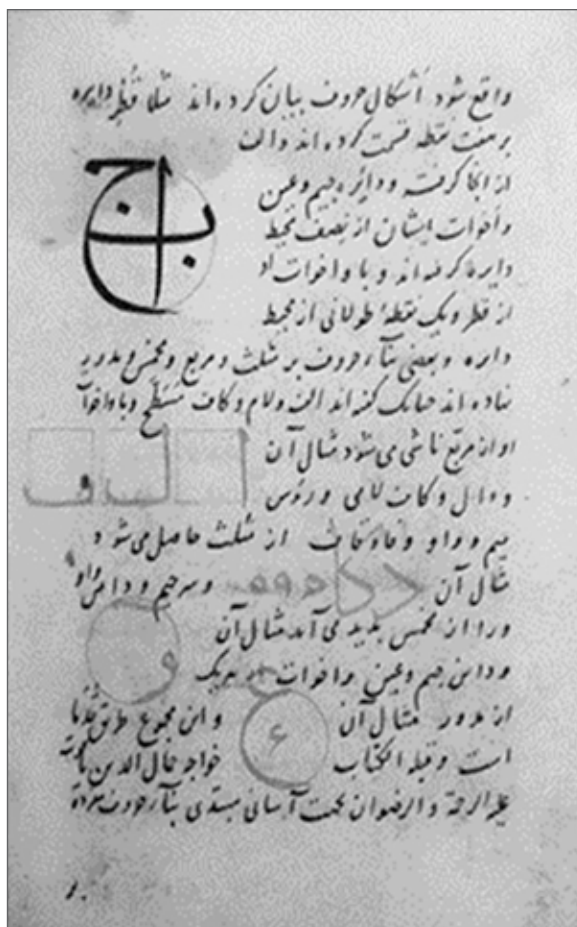 واقع شود اشکال حروف بیان کرده‌اند مثلا قطر دایره
بر هفت نقطه قسمت کرده‌اند والف
از انجا گرفته و دایره جیم وعین
واخوات ایشان از نصف محیط
دایره گرفته‌اند و با واخوات او
از قطر ویک نقطه طولانی از محیط
دایره وبعضی بناء حروف بر مثلث و مربع و مخمس و مدور
نهاده‌اند چنانک گفته‌اند الف ولام و کاف مسطح وبا واخوات
او از مربع ناشی می‌شود مثال آن
و دال و کاف لامی و روس
میم و واو و فا وقاف از مثلث حاصل می‌شود
مثال آن وسر جیم و دامن واو
ورا از مخمس پدید می‌آید مثال آن
ودامن جیم وعین واخوات هر یک
از مدور مثال آن واین مجموع طریق قدما
است وقبلة الکتاب خواجه جمال الدین یاقوت
علیه الرحمة والرضوان بجهت آسانی مبتدی بناء حروف مفرده